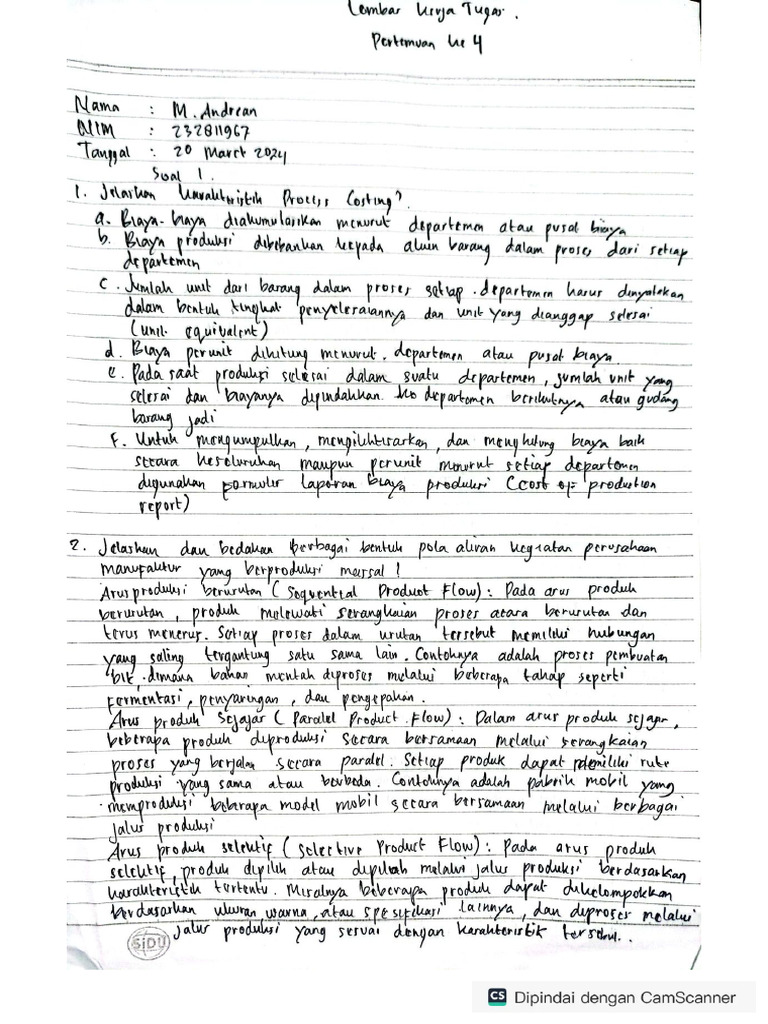 Lembar Kerja Tugas.
Pertemuan ke 4
Nama : M. Andrean
NIM : 232811967
Tanggal : 20 Maret 2024
Soal 1.
1. Jelaskan karakteristik Process Costing?
a. Biaya-biaya diakumulasikan menurut departemen atau pusat biaya
b. Biaya produksi dibebankan kepada aluin barang dalam proses dari setiap
departemen
c. Jumlah unit dari barang dalam proses setiap departemen harus dinyatakan
dalam bentuk tingkat penyelesaiannya dan unit yang dianggap selesai
(unit equivalent)
d. Biaya perunit dihitung menurut departemen atau pusat biaya.
e. Pada saat produksi selesai dalam suatu departemen, jumlah unit yang
selesai dan biayanya dipindahkan ke departemen berikutnya atau gudang
barang jadi
F. Untuk mengumpulkan, mengikhtisarkan, dan menghitung biaya baik
secara keseluruhan maupun perunit menurut setiap departemen
digunakan formulir laporan biaya produksi (cost of production
report)
2. Jelaskan dan bedakan berbagai bentuk pola aliran kegiatan perusahaan
manufaktur yang berproduksi massal!
Arus produksi berurutan (Sequential Product Flow): Pada arus produk
berurutan, produk melewati serangkaian proses acara berurutan dan
terus menerus. Setiap proses dalam urutan tersebut memiliki hubungan
yang saling tergantung satu sama lain. Contohnya adalah proses pembuatan
bir, dimana bahan mentah diproses melalui beberapa tahap seperti
fermentasi, penyaringan, dan pengepakan.
Arus produk Sejajar (Paralel Product Flow): Dalam arus produk sejajar,
beberapa produk diproduksi secara bersamaan melalui serangkaian
proses yang berjalan secara paralel. Setiap produk dapat memiliki rute
produksi yang sama atau berbeda. Contohnya adalah pabrik mobil yang
memproduksi beberapa model mobil secara bersamaan melalui berbagai
jalur produksi
Arus produk selektif (Selective Product Flow): Pada arus produk
selektif, produk dipilih atau dipisah melalui jalur produksi berdasarkan
karakteristik tertentu. Misalnya beberapa produk dapat dikelompokkan
berdasarkan ukuran warna, atau spesifikasi lainnya, dan diproses melalui
jalur produksi yang sesuai dengan karakteristik tersebut..
SiDU
CS Dipindai dengan CamScanner